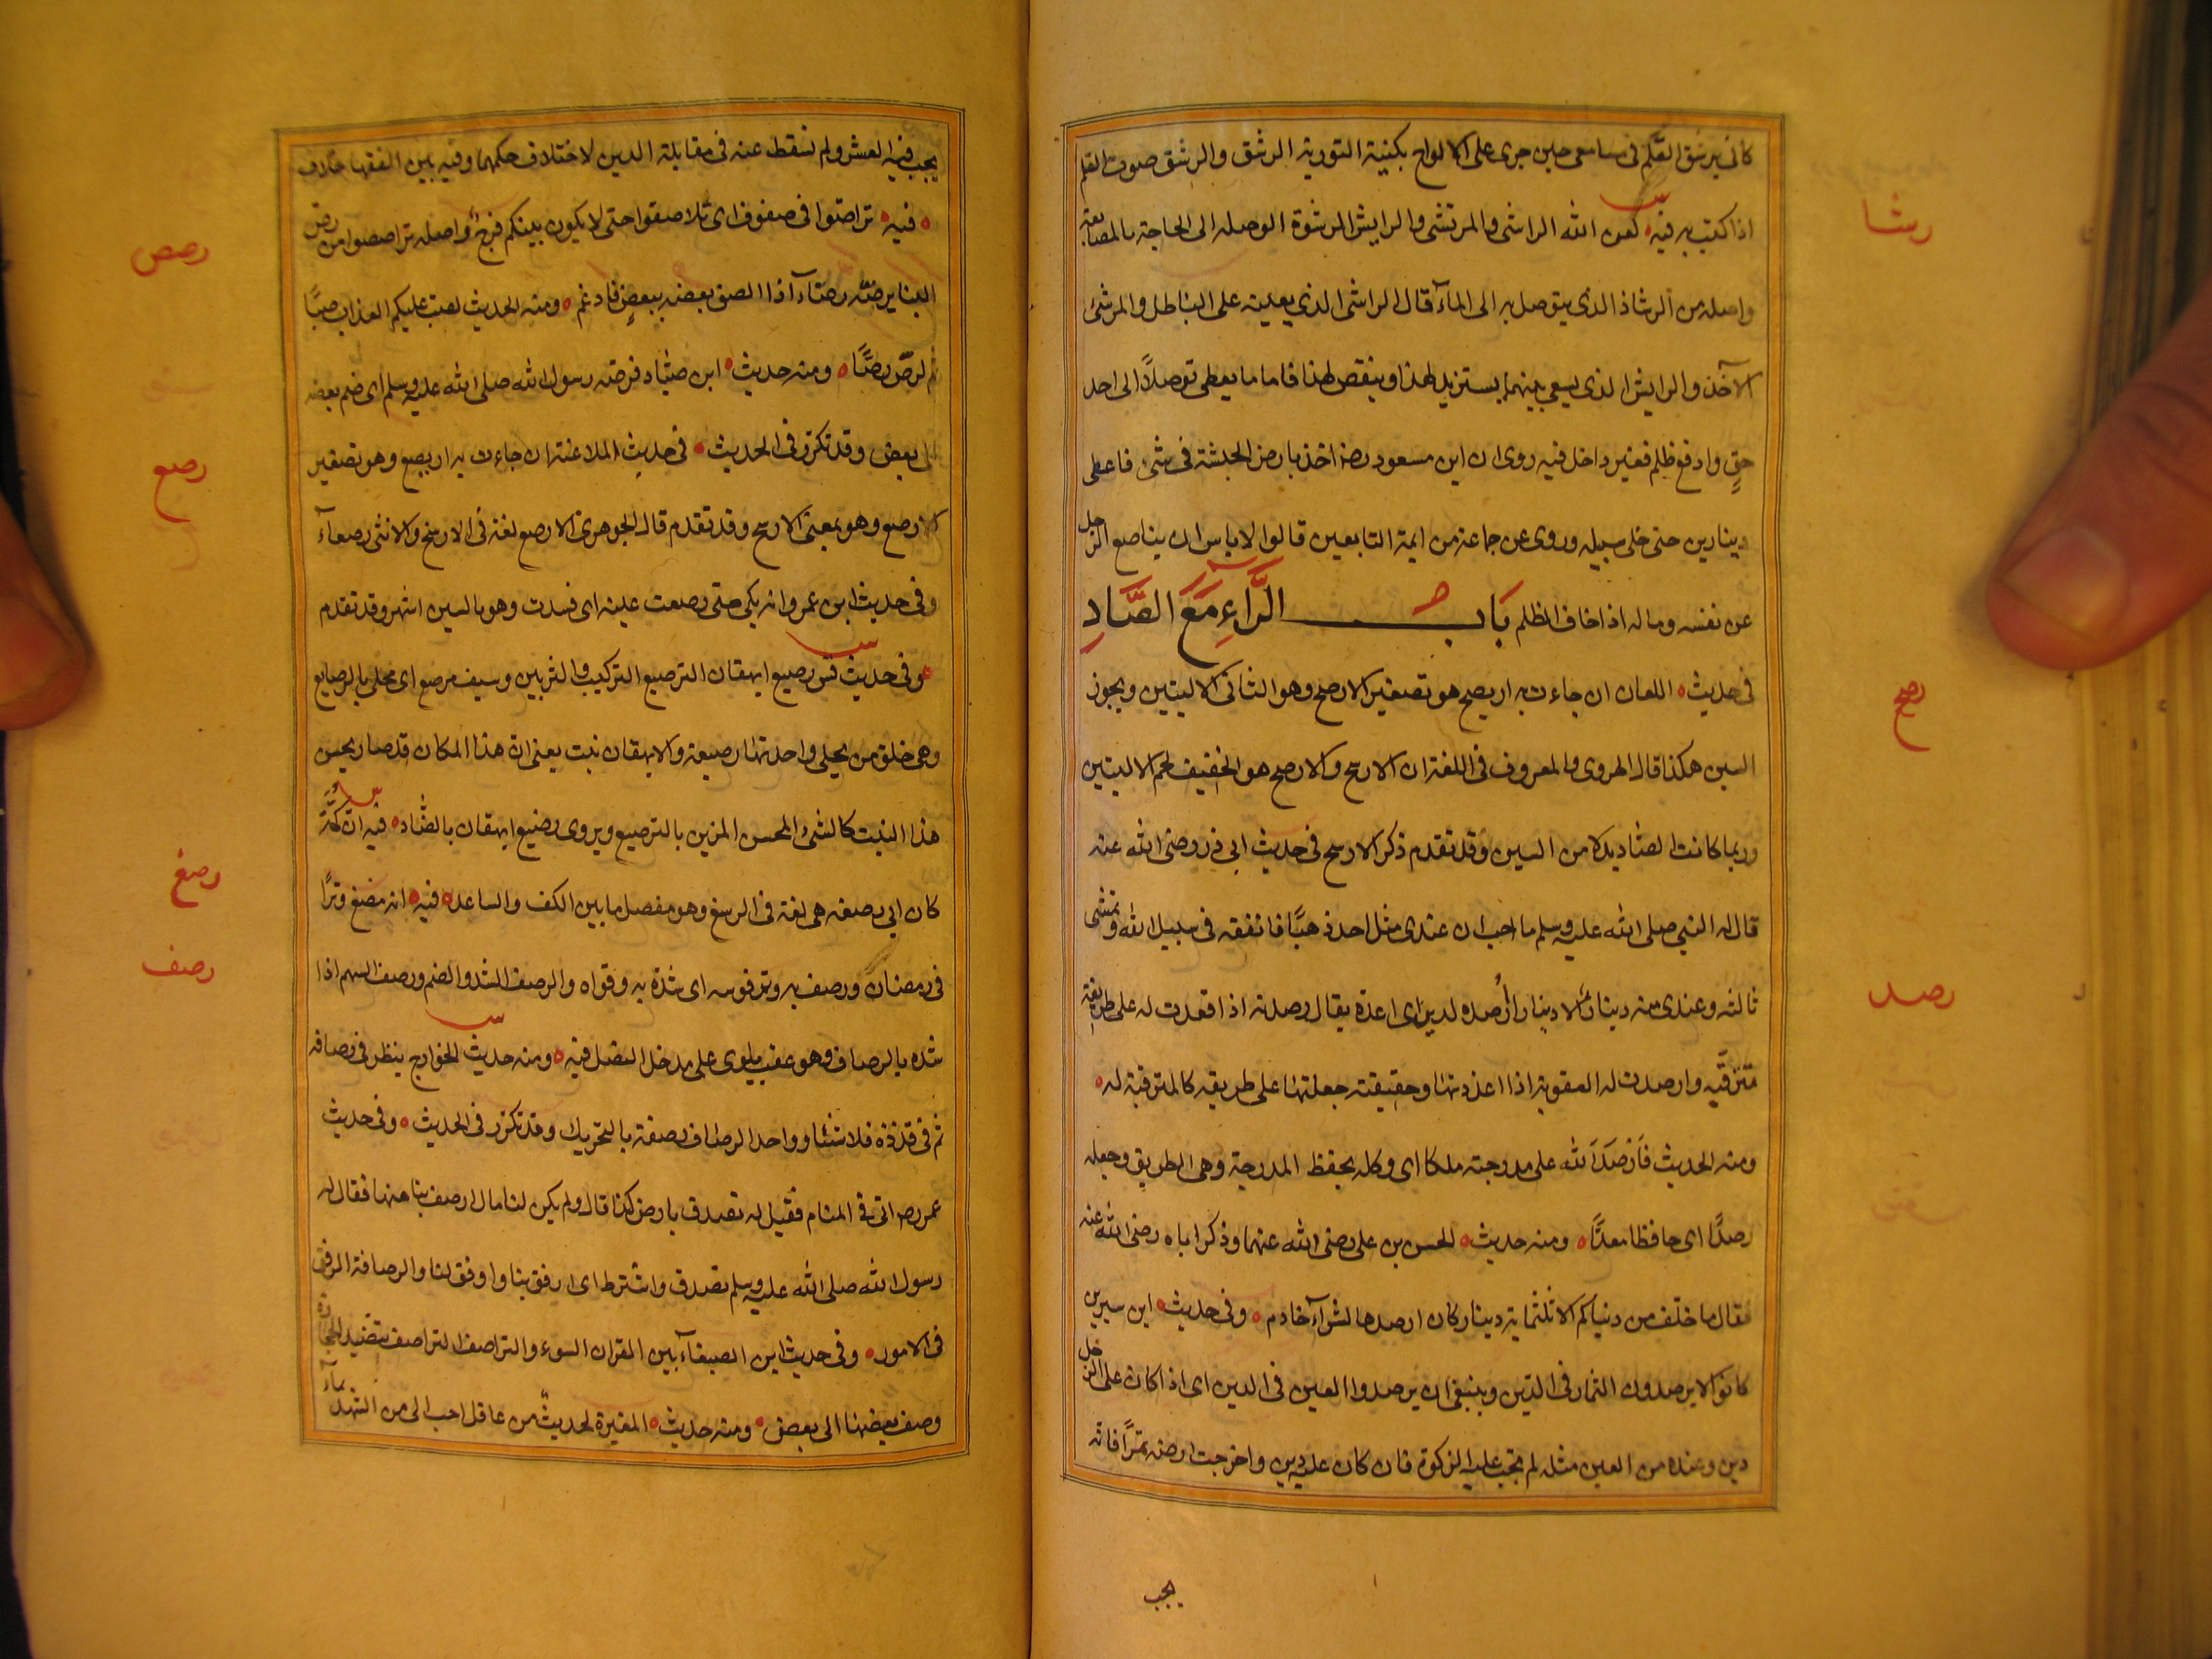 كانى برشق القلم فى مسامعى حين جرى على الالواح بكتبة التورية الرشق والرشق صوت القلم
رشا
اذا كتب به فيه لعن الله الراشى والمرتشى والرايش الرشوة الوصلة الى الحاجة بالمصانعة
واصله من الرشاذ الذى يتوصل به الى الماء قال الراشى الذى يعينه على الباطل والمرتشى
الآخذ والرايش الذى يسعى بينهما يستزيد لهذا وينقص لهذا فاما ما يعطى توصلاً الى اخذ
حق وادفع ظلم فغير داخل فيه روى ان ابن مسعود رضه اخذ بارض الحبشة فى شئ فاعطى
دينارين حتى خلى سبيله وروى عن جماعة من ايمة التابعين قالوا لا باس ان يصانع الرجل
عن نفسه وماله اذا خاف الظلم بَاب الرَّاءِ مَعَ الصَّادِ
رصح
فى حديث اللعان ان جاءت به اريصح هو تصغير الارصح وهو الناتى الاليتين ويجوز
السين هكذا قال الهروى والمعروف فى اللغة ان الارسح والارصح هو الخفيف لحم الاليتين
وربما كانت الصاد بدلا من السين وقد تقدم ذكر الارسح فى حديث ابى ذر رضى الله عنه
قال له النبي صلى الله عليه وسلم ما احب ان عندى مثل احد ذهبًا فانفقه فى سبيل الله وتمشى
رصد
ثالثه وعندى منه دينار الا دينار أُرصده لدين اى اعدة يقال رصدته اذا قعدت له على طريقة
تترقبه وارصدت له العقوبة اذا اعددتها وحقيقته جعلتها على طريقه كالمترقبة له
ومنه الحديث فَاَرْصَدَ الله على مدرجته ملكا اى وكله بحفظ المدرجة وهى الطريق وجعله
رصدًا اى حافظا معدًّا ومنه حديث الحسن بن على رضى الله عنهما وذكر اباه رضى الله عنه
فقال ما خلف من دنياكم الا ثلثماية دينار كان ارصدها لشرآء خادم وفى حديث ابن سيرين
كانوا لا يرصدون الثمار فى الدين وينبغى ان يرصدوا العين فى الدين اى اذا كان على الرجل
دين وعنده من العين مثله لم تجب عليه الزكوة فان كان عليه دين واخرجت ارضه تمرًا فانه
يجب
يجب فيه العشر ولم تسقط عنه فى مقابلة الدين لاختلاف حكمهما وفيه بين الفقها خلاف
رصص
فيه تراصوا فى صفوف اى تلاصقوا حتى لا يكون بينكم فرج واصله تراصصوا من رصّ
البنا يرصّه رصّاً اذا الصق بعضه ببعضٍ فادغم ومنه الحديث لصب عليكم العذاب صبًّا
ثم لرصّ رصًّا ومنه حديث ابن صيّاد فرصّه رسول الله صلى الله عليه وسلم اى ضم بعضه
رصع
الى بعض وقد تكرّر فى الحديث فى حديث الملاعنة ان جاءت به اريصع وهو تصغير
الارصع وهو بمعنى الارسح وقد تقدم قال الجوهرى الارصع لغة فى الارسح والانثى رصعآء
وفى حديث ابن عمرو انه بكى حتى رصعت عينه اى فسدت وهو بالسين اشهر وقد تقدم
وفى حديث قس رصيع ايهقان الترصيع التركيب والتزيين وسيف مرصع اى محلى بالرصايع
وهى حلق من يحلى واحدتها رصيعة والايهقان نبت يعنى ان هذا المكان قد صار بحسن
هذا النبت كالشئ المحسن المزين بالترصيع ويروى رضيع ايهقان بالضاد فيه ان كُمَّهُ
رصغ
كان الى رصغه هى لغة فى الرسغ وهو مفصل ما بين الكف والساعد فيه انه مضغ وترًا
رصف
فى رمضان ورصف به وتر قوسه اى شدّه به وقواه والرصف الشد والضم ورصف السهم اذا
شده بالرصاف وهو عقب يلوى على مدخل النصل فيه ومنه حديث الخوارج ينظر فى رصافه
ثم فى قذذه فلا شيئا وواحد الرصاف رصفة بالتحريك وقد تكرّر فى الحديث وفى حديث
عمر رضه اتى فى المنام فقيل له تصدق بارض كذا قال ولم يكن لنا مال ارصف بنا منها فقال له
رسول الله صلى الله عليه وسلم تصدق واشترط اى ارفق بنا واوفق لنا والرصافة الرفق
فى الامور وفى حديث ابن الصبغآء بين القران السوء والتراصف التراصف تنضيد الحجارة
وصف بعضها الى بعض ومنه حديث المغيرة لحديث من عاقل احب الى من الشهد بمآء